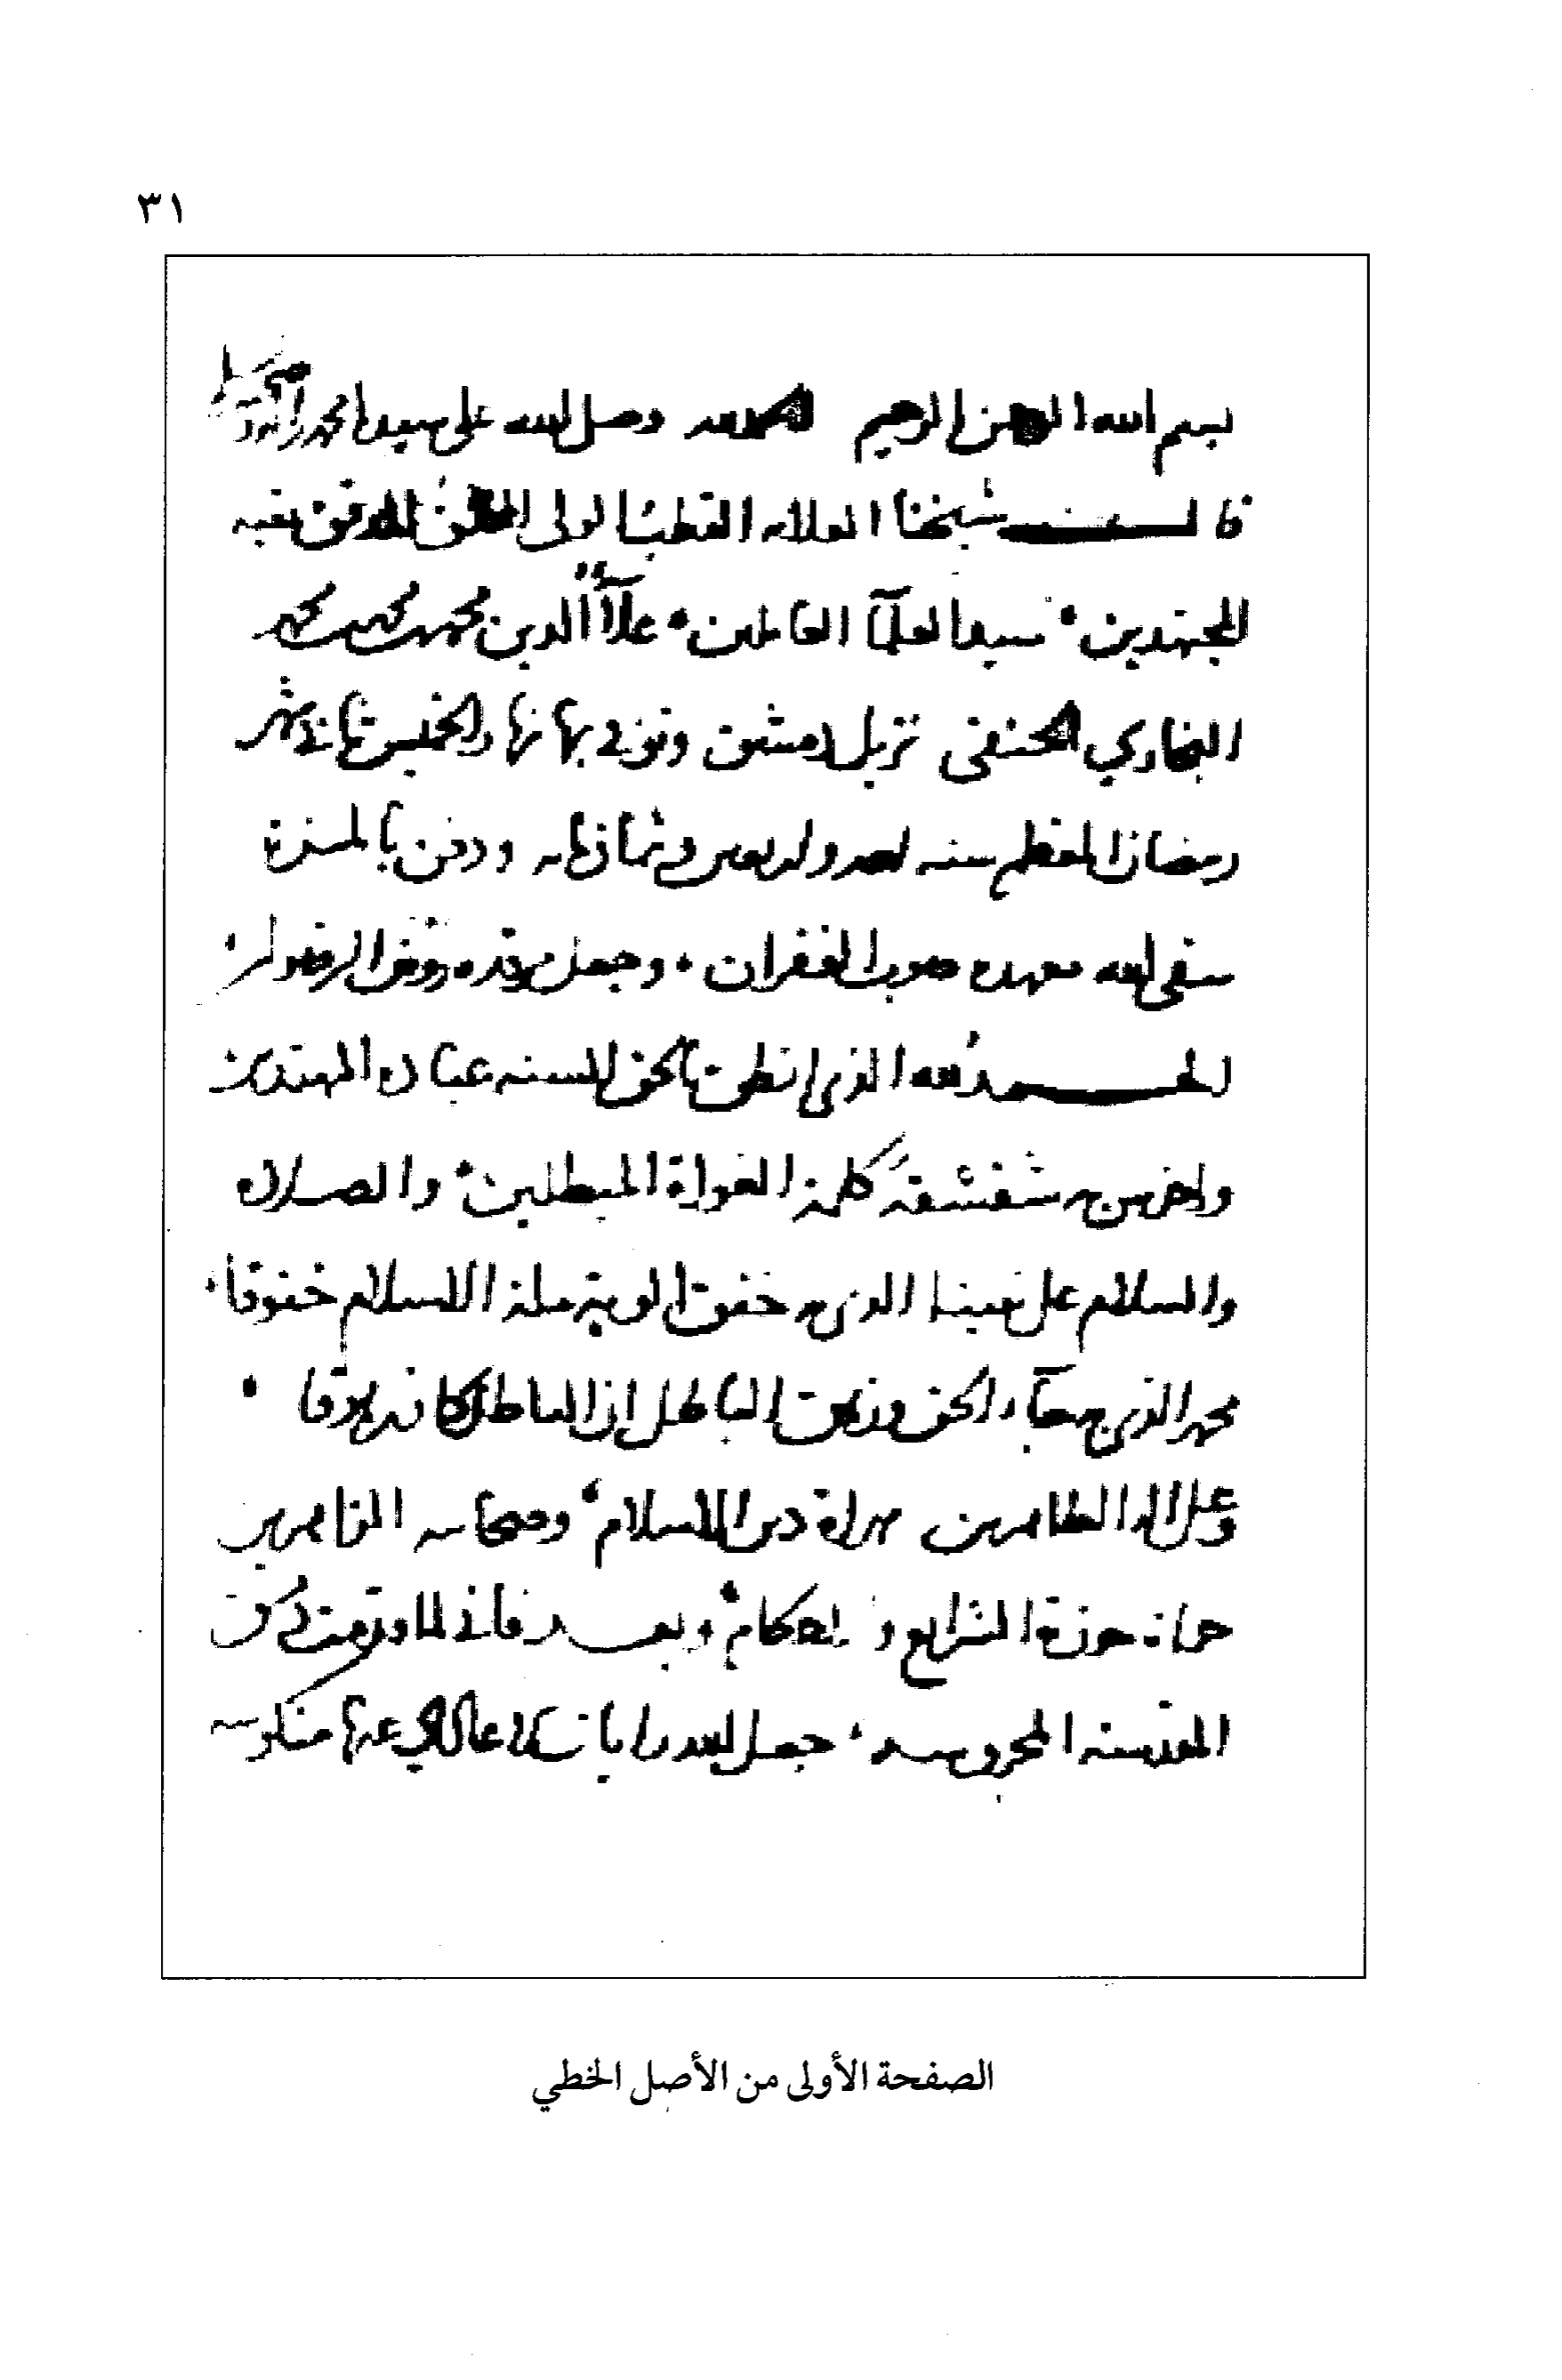 ٣١
بسم الله الرحمن الرحيم الحمد لله وصلى الله على سيدنا محمد وآله وصحبه
قال شيخنا العلامه القطب الولي المحقق المدقق بقية
المجتهدين سيد العلمآ العاملين علآء الدين محمد بن محمد بن محمد
البخاري الحنفي نزيل دمشق وتوفي بها نهار الخميس ثاني شهر
رمضان المعظم سنه احد واربعين وثمانمايه ودفن بالمزة
سقى الله عهده صوب الغفران وجعل مرقده روضة الرضوان
الحمد لله الذي انطق بالحق السنه عباده المهتدين
واخرس شقشقة كلمة الغواة المبطلين والصلاه
والسلام على نبينا الذي خفقت الوية ملة الاسلام خفوقا
محمد الذي جآء الحق وزهق الباطل ان الباطل كان زهوقا
وعلى اله الطاهرين هداة دين الاسلام وصحابته الناصرين
حماة حوزة الشرايع والاحكام وبعد فاني لما قدمت دمشق
المقدسة المحروسه جعل الله رايات الاعادي عنها منكوسه
الصفحة الأولى من الأصل الخطي